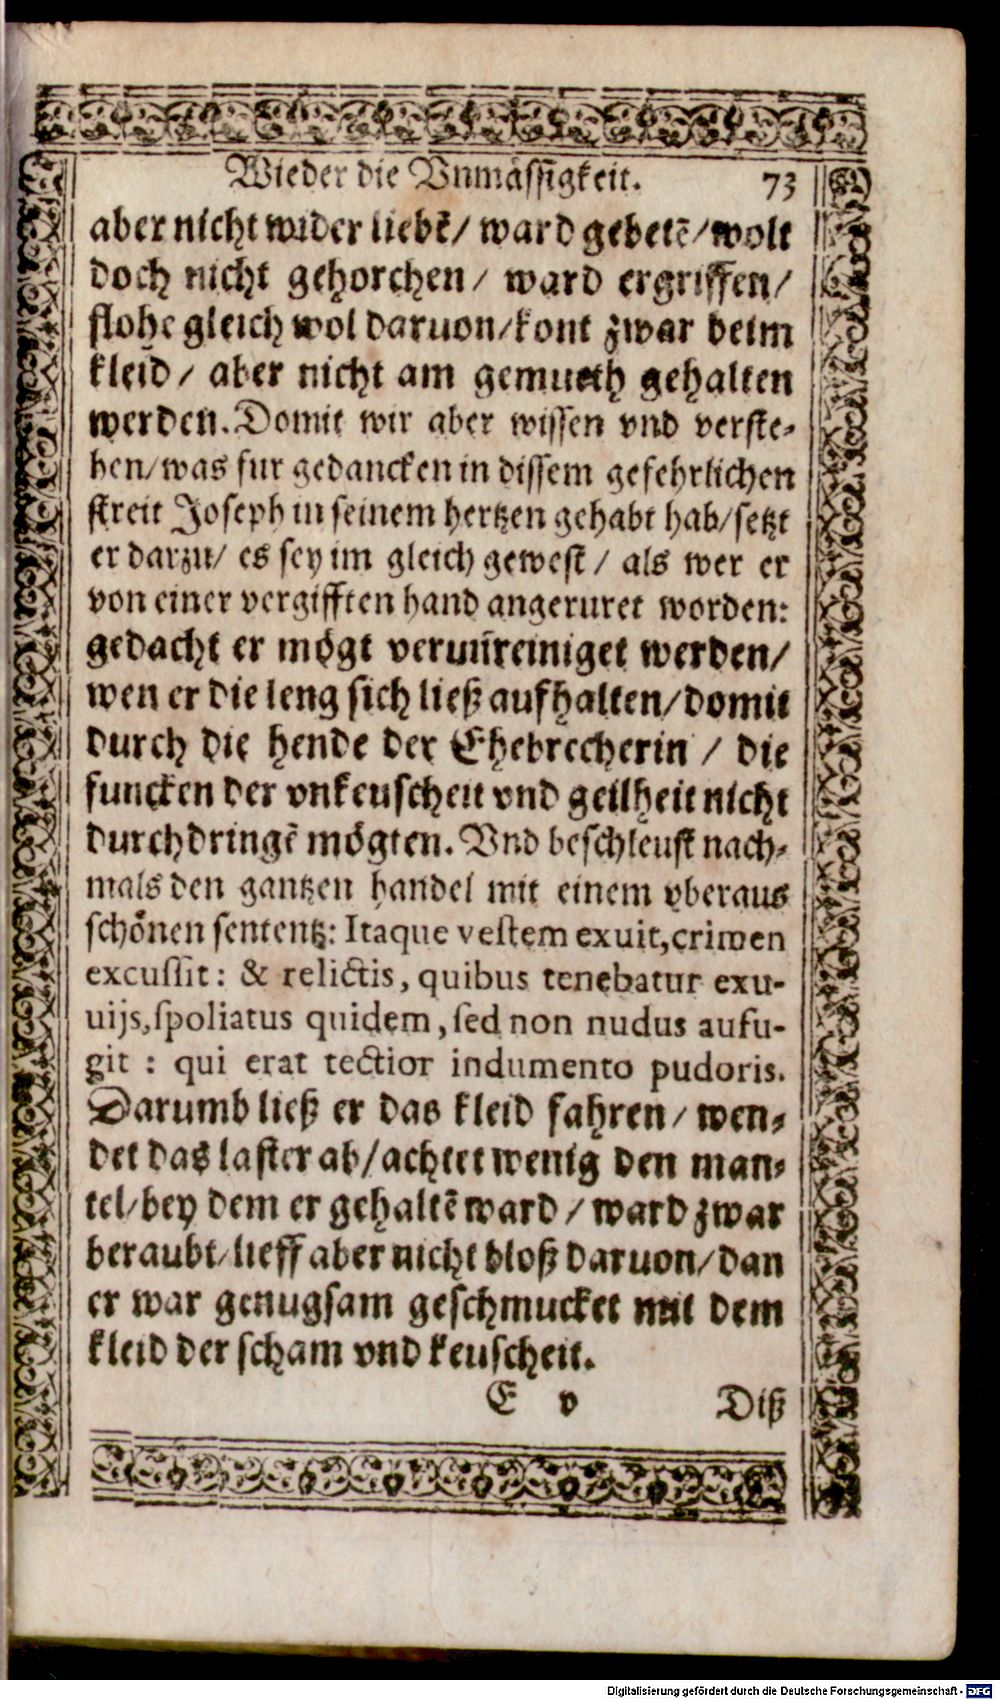 Wieder die Vnmässigkeit. 73
aber nicht wider liebt/ ward gebetē/ wolt
doch nicht gehorchen/ ward ergriffen/
flohe gleich wol daruon/ kont zwar beim
kleid/ aber nicht am gemueth gehalten
werden. Domit wir aber wissen vnd verste-
hen/ was fur gedancken in dissem gefehrlichen
streit Joseph in seinem hertzen gehabt hab/ setzt
er darzu/ es sey im gleich gewest/ als wer er
von einer vergifften hand angeruret worden:
gedacht er mögt verunreiniget werden/
wen er die leng sich ließ aufhalten/ domit
durch die hende der Ehebrecherin/ die
funcken der vnkeuscheit vnd geilheit nicht
durchdringē mögten. Vnd beschleust nach-
mals den gantzen handel mit einem vberaus
schönen sententz: Itaque vestem exuit, crimen
excussit: & relictis, quibus tenebatur exu-
uijs, spoliatus quidem, sed non nudus aufu-
git: qui erat tectior indumento pudoris.
Darumb ließ er das kleid fahren/ wen-
det das laster ab/ achtet wenig den man-
tel/ bey dem er gehaltē ward/ ward zwar
beraubt/ lieff aber nicht bloß daruon/ dan
er war genugsam geschmucket mit dem
kleid der scham vnd keuscheit.
E v Diß
Digitalisierung gefördert durch die Deutsche Forschungsgemeinschaft - DFG